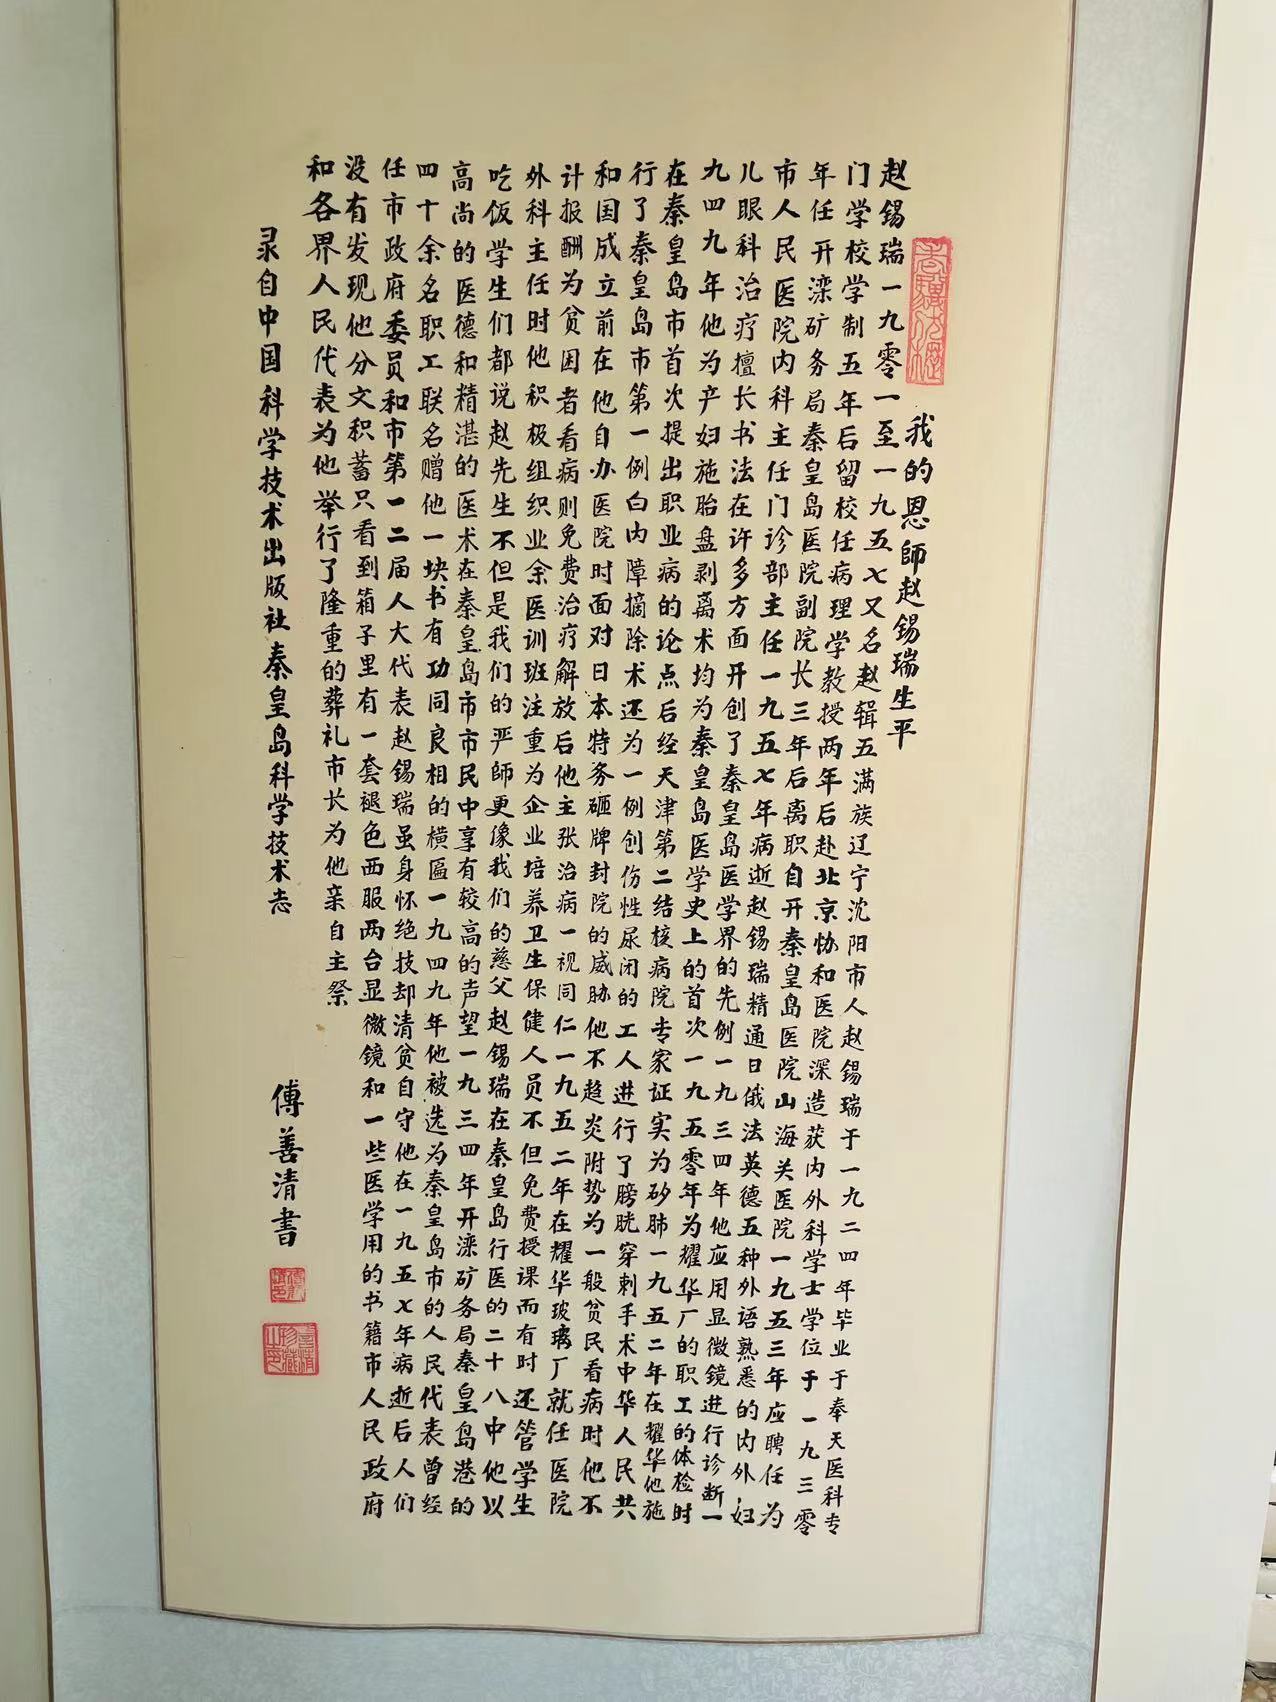 我的恩師赵锡瑞生平
赵锡瑞一九零一至一九五七又名赵辑五满族辽宁沈阳市人赵锡瑞于一九二四年毕业于奉天医科专
门学校学制五年后留校任病理学教授两年后赴北京协和医院深造获内外科学士学位于一九三零
年任开滦矿务局秦皇岛医院副院长三年后离职自开秦皇岛医院山海关医院一九五三年应聘任为
市人民医院内科主任门诊部主任一九五七年病逝赵锡瑞精通日俄法英德五种外语熟悉的内外妇
儿眼科治疗擅长书法在许多方面开创了秦皇岛医学界的先例一九三四年他应用显微镜进行诊断一
九四九年他为产妇施胎盘剥离术均为秦皇岛医学史上的首次一九五零年为耀华厂的职工的体检时
在秦皇岛市首次提出职业病的论点后经天津第二结核病院专家证实为矽肺一九五二年在耀华他施
行了秦皇岛市第一例白内障摘除术还为一例创伤性尿闭的工人进行了膀胱穿刺手术中华人民共
和国成立前在他自办医院时面对日本特务砸牌封院的威胁他不趋炎附势为一般贫民看病时他不
计报酬为贫困者看病则免费治疗解放后他主张治病一视同仁一九五二年在耀华玻璃厂就任医院
外科主任时他积极组织业余医训班注重为企业培养卫生保健人员不但免费授课而有时还管学生
吃饭学生们都说赵先生不但是我们的严師更像我们的慈父赵锡瑞在秦皇岛行医的二十八中他以
高尚的医德和精湛的医术在秦皇岛市市民中享有较高的声望一九三四年开滦矿务局秦皇岛港的
四十余名职工联名赠他一块书有功同良相的横匾一九四九年他被选为秦皇岛市的人民代表曾经
任市政府委员和市第一二届人大代表赵锡瑞虽身怀绝技却清贫自守他在一九五七年病逝后人们
没有发现他分文积蓄只看到箱子里有一套褪色西服两台显微镜和一些医学用的书籍市人民政府
和各界人民代表为他举行了隆重的葬礼市长为他亲自主祭
录自中国科学技术出版社秦皇岛科学技术志
傅善清書